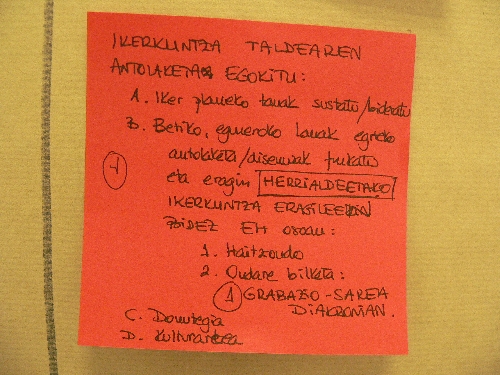 IKERKUNTZA TALDEAREN
ANTOLAKETA EGOKITU:
A. Iker planeko lanak sustatu/bideratu
B. Betiko, eguneroko lanak egiteko
antolaketa/diseinuak finkatu
4
eta eragin HERRIALDEETAKO
IKERKUNTZA ERAGILEEKIN
BIDEZ EH osoan:
1. Haitzondo
2. Ondare bilketa:
1 GRABAZIO-SAREA
DIAKRONIAN.
C. Donutegia
D.